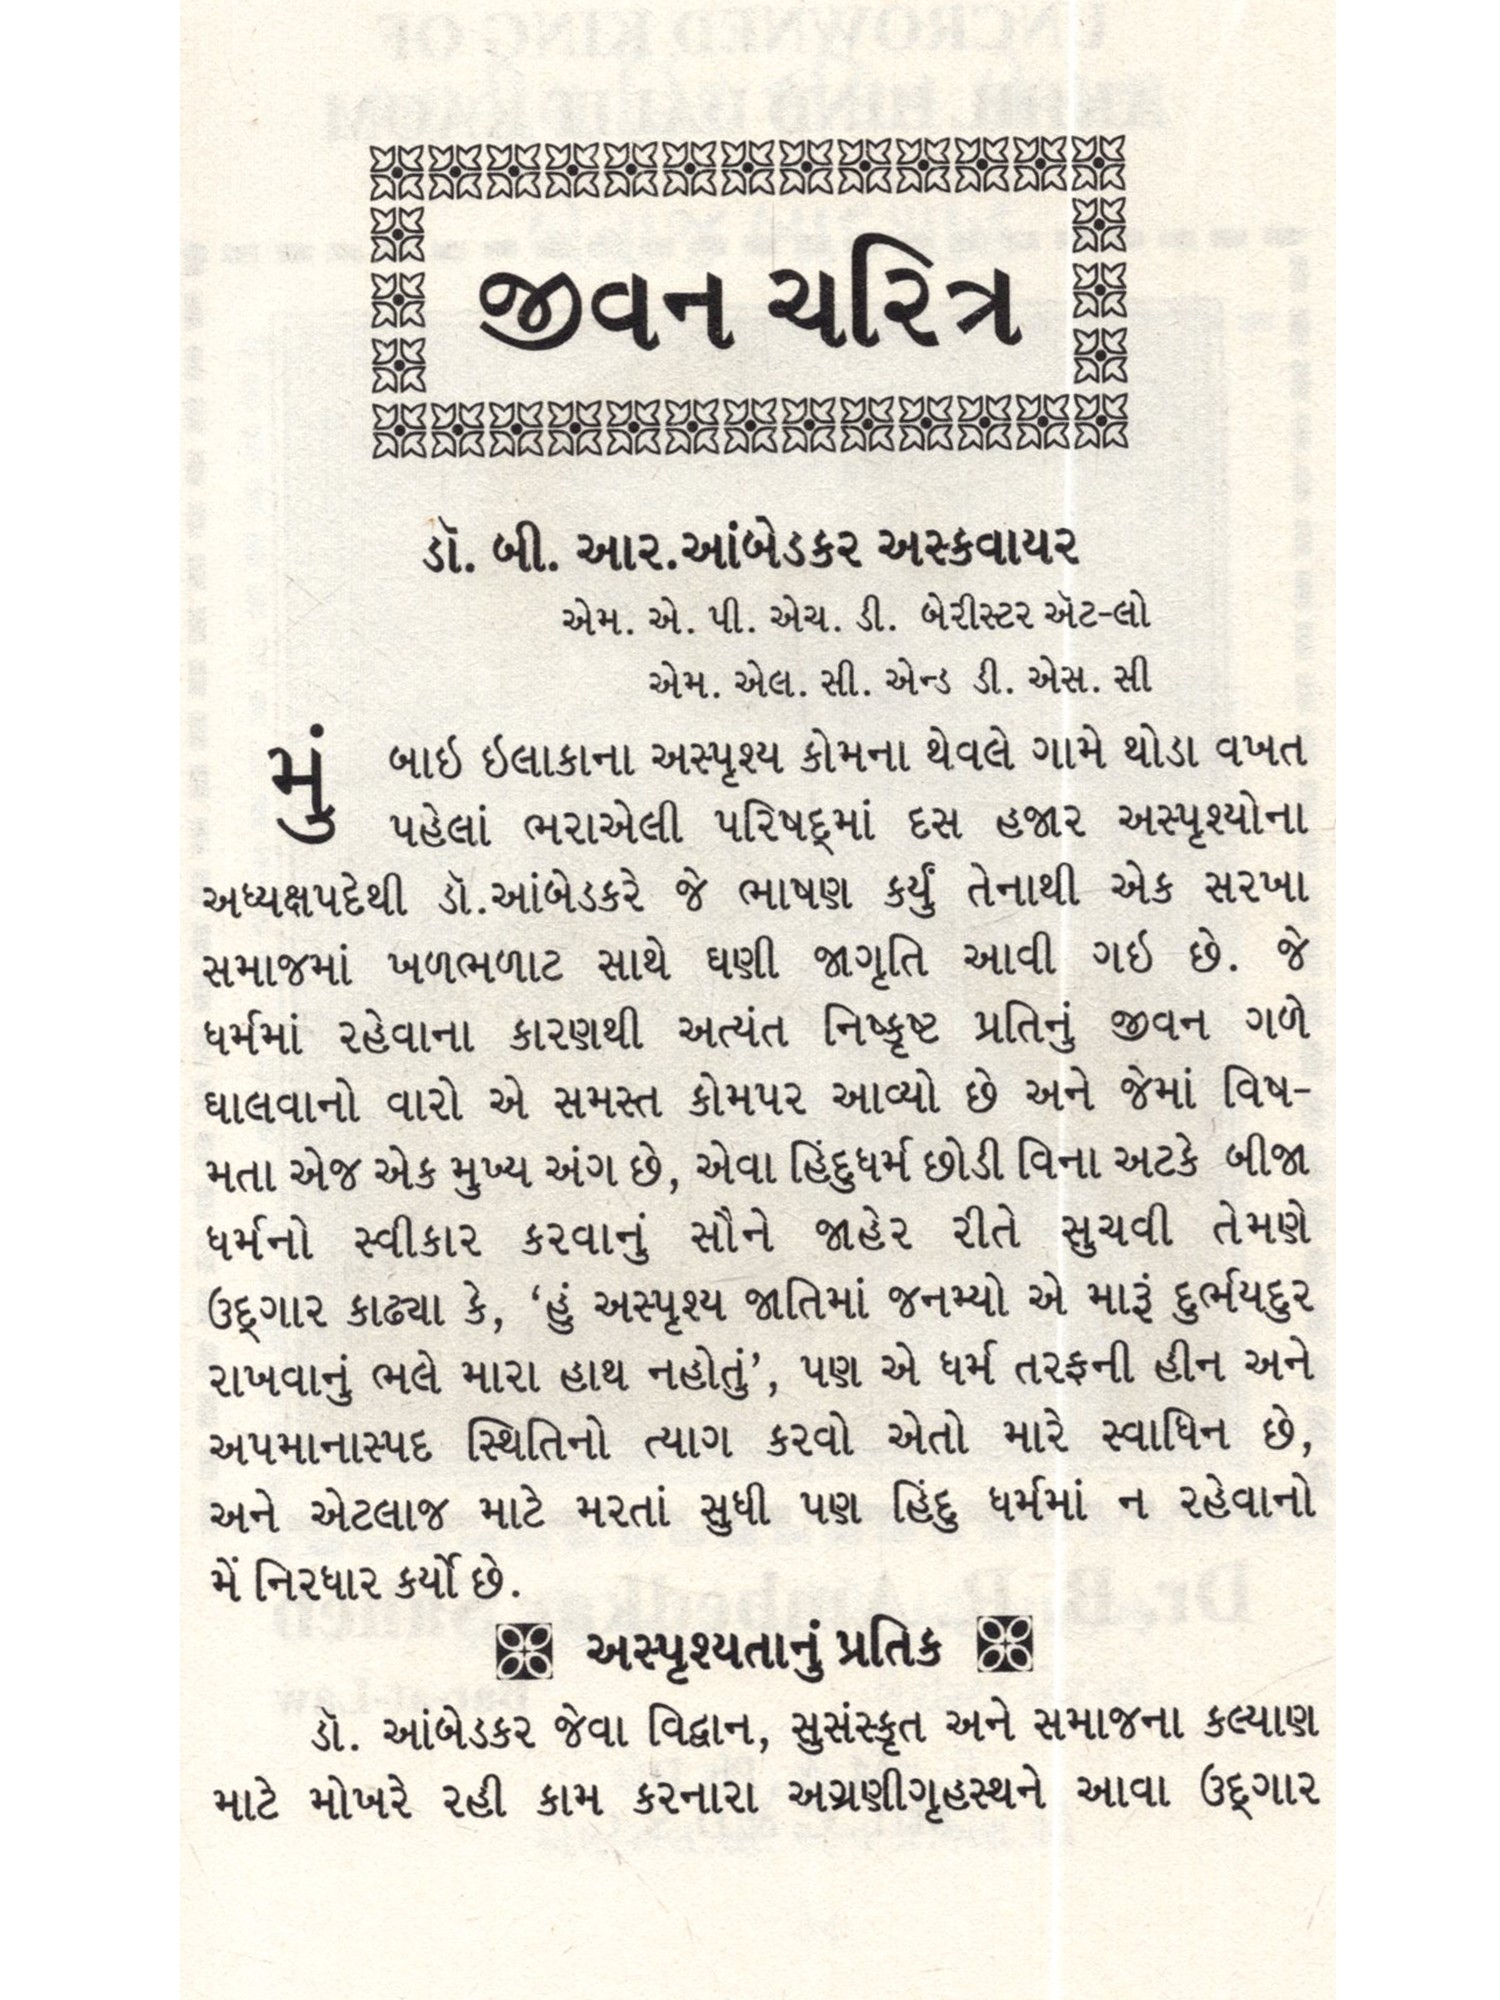 જીવન ચરિત્ર
ડૉ. બી. આર.આંબેડકર અસ્કવાયર
એમ. એ. પી. એચ. ડી. બેરીસ્ટર ઍટ-લો
એમ. એલ. સી. એન્ડ ડી. એસ. સી
મુંબાઇ ઇલાકાના અસ્પૃશ્ય કોમના થેવલે ગામે થોડા વખત
પહેલાં ભરાએલી પરિષદ્માં દસ હજાર અસ્પૃશ્યોના
અધ્યક્ષપદેથી ડૉ.આંબેડકરે જે ભાષણ કર્યું તેનાથી એક સરખા
સમાજમાં ખળભળાટ સાથે ઘણી જાગૃતિ આવી ગઇ છે. જે
ધર્મમાં રહેવાના કારણથી અત્યંત નિષ્કૃષ્ટ પ્રતિનું જીવન ગળે
ઘાલવાનો વારો એ સમસ્ત કોમપર આવ્યો છે અને જેમાં વિષ-
મતા એજ એક મુખ્ય અંગ છે, એવા હિંદુધર્મ છોડી વિના અટકે બીજા
ધર્મનો સ્વીકાર કરવાનું સૌને જાહેર રીતે સુચવી તેમણે
ઉદ્ગાર કાઢ્યા કે, ‘હું અસ્પૃશ્ય જાતિમાં જનમ્યો એ મારૂં દુર્ભયદુર
રાખવાનું ભલે મારા હાથ નહોતું’, પણ એ ધર્મ તરફની હીન અને
અપમાનાસ્પદ સ્થિતિનો ત્યાગ કરવો એતો મારે સ્વાધિન છે,
અને એટલાજ માટે મરતાં સુધી પણ હિંદુ ધર્મમાં ન રહેવાનો
મેં નિરધાર કર્યો છે.
અસ્પૃશ્યતાનું પ્રતિક
ડૉ. આંબેડકર જેવા વિદ્વાન, સુસંસ્કૃત અને સમાજના કલ્યાણ
માટે મોખરે રહી કામ કરનારા અગ્રણીગૃહસ્થને આવા ઉદ્ગાર